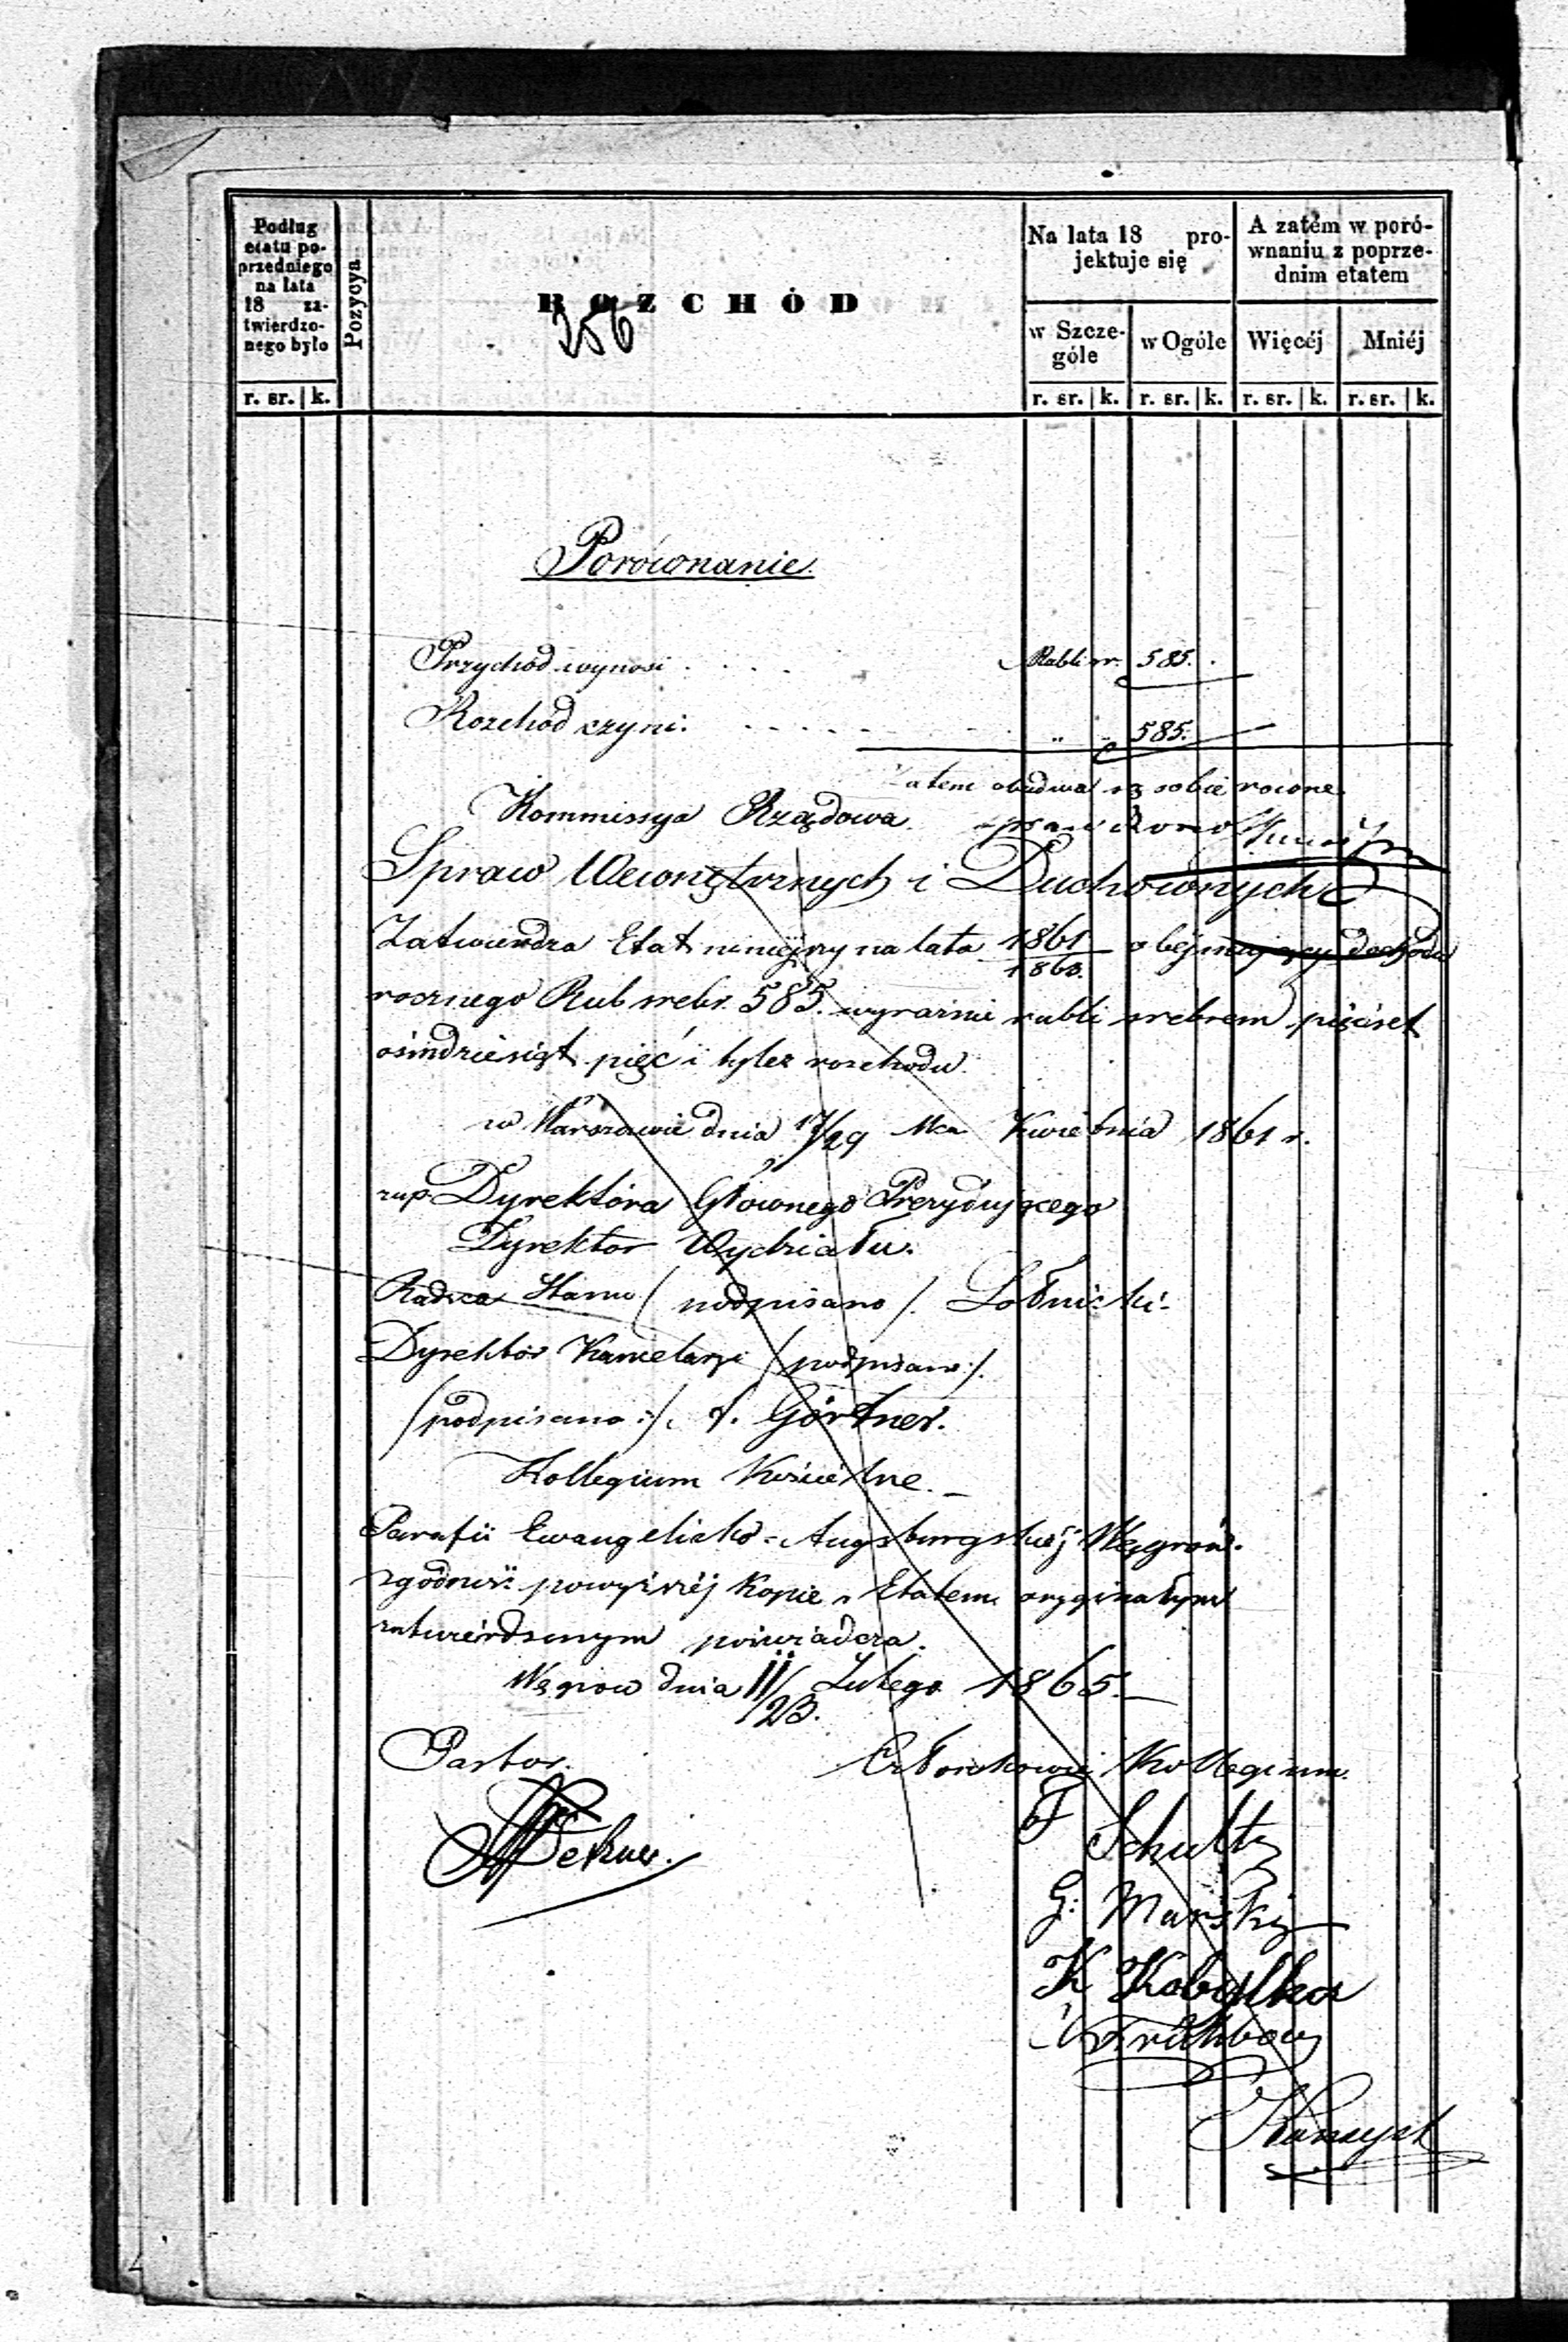 Podług etatu poprzedniego na lata 18 zatwierdzonego było
Pozycya
ROZCHÓD
256
Na lata 18 projektuje się
A zatém w porównaniu z poprzednim etatem
w Szczególe
w Ogóle
Więcéj
Mniéj
r. sr. k. r. sr. k. r. sr. k. r. sr. k. r. sr. k.
Porównanie.
Przychód wynosi . . . . Rubli sr. 585.
Rozchód czyni. . . . . . „ „ 585.
Zatem obudwa są sobie równe
Kommissya Rządowa
Spraw Wewnętrznych i Duchownych
Zatwierdza Etat niniejszy na lata 1861/1863. obejmujący dochodu
rocznego Rub srebr. 585. wyraźnie rubli srebrem pięćset
ośmdziesiąt pięć i tyleż rozchodu.
w Warszawie dnia 17/29 Mca Kwietnia 1861 r.
zup. Dyrektora Głównego Prezydującego
Dyrektor Wydziału.
Radca Stanu /podpisano/.
Dyrektor Kancelaryi /podpisano:/.
/podpisano:/. Görtner.
Kollegium Kościelne. –
Parafii Ewangelicko-Augsburgskiéj Węgrow.
zgodność powyższéj Kopie z Etatem oryginalnym
zatwierdzonym poświadcza.
Węgrow dnia 11/23. Lutego 1865. –
Pastor.
Członkowie Kollegium.
F Schultz
G:
K Kobylka